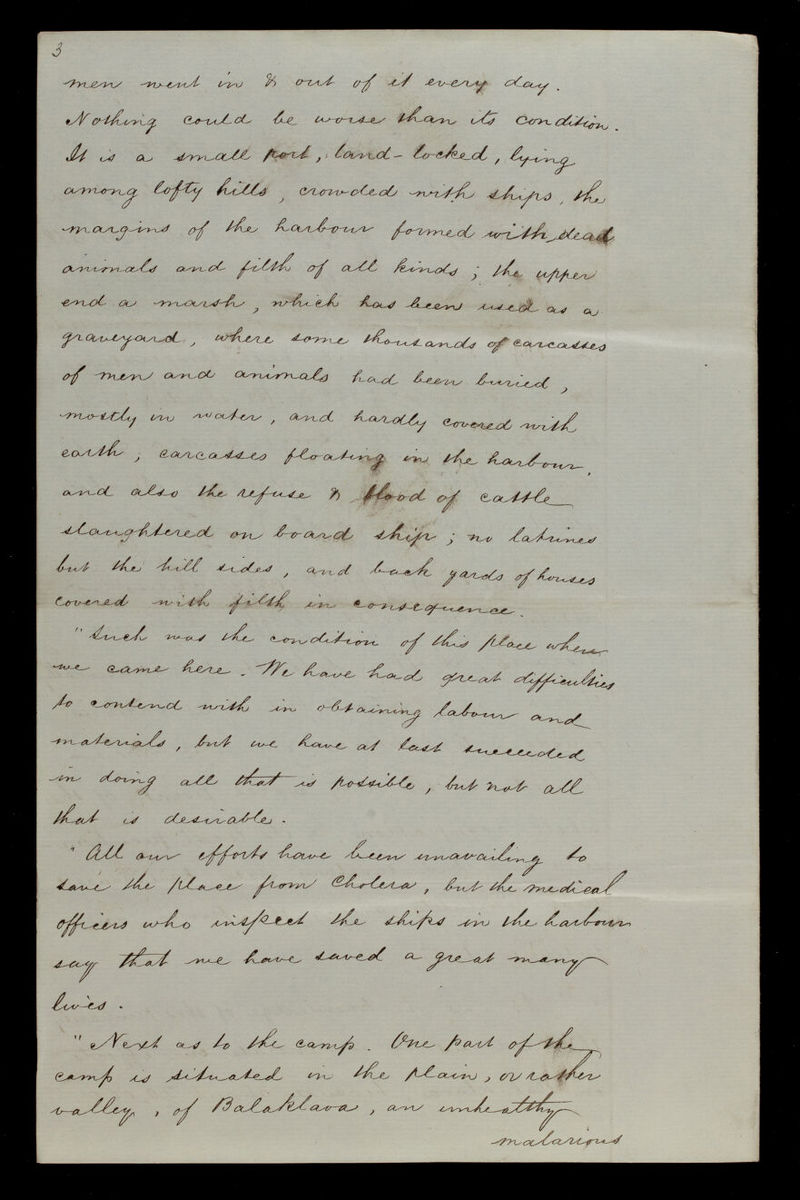 3
men went in & out of it every day.
Nothing could be worse than its condition.
It is a small port, land-locked, lying
among lofty hills, crowded with ships, the
margins of the harbour formed with dead
animals and filth of all kinds; the upper
end a marsh, which has been used as a
graveyard, where some thousands of carcasses
of men and animals had been buried,
mostly in water, and hardly covered with
earth; carcasses floating in the harbour,
and also the refuse & blood of cattle
slaughtered on board ship; no latrines
but the hill sides, and back yards of houses
covered with filth in consequence.
"Such was the condition of this place when
we came here. We have had great difficulties
to contend with in obtaining labour and
materials, but we have at last succeeded
in doing all that is possible, but not all
that is desirable.
"All our efforts have been unavailing to
save the place from Cholera, but the medical
officers who inspect the ships in the harbour
say that we have saved a great many
lives.
"Next as to the camp. One part of the
camp is situated in the plain, or rather
valley, of Balaklava, an unhealthy
malarious